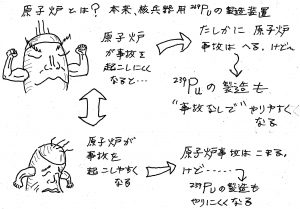 原子炉とは? 本来、核兵器用 ²³⁹Puの製造装置
原子炉
が事故を
起こしにくく
なると…
たしかに 原子炉
事故は へる。けど、
²³⁹Puの 製造も
"事故なしで" やりやすく
なる
原子炉が
事故を
起こしやすく
なる
原子炉事故は こまる。
けど……
²³⁹Puの製造も
やりにくくなる